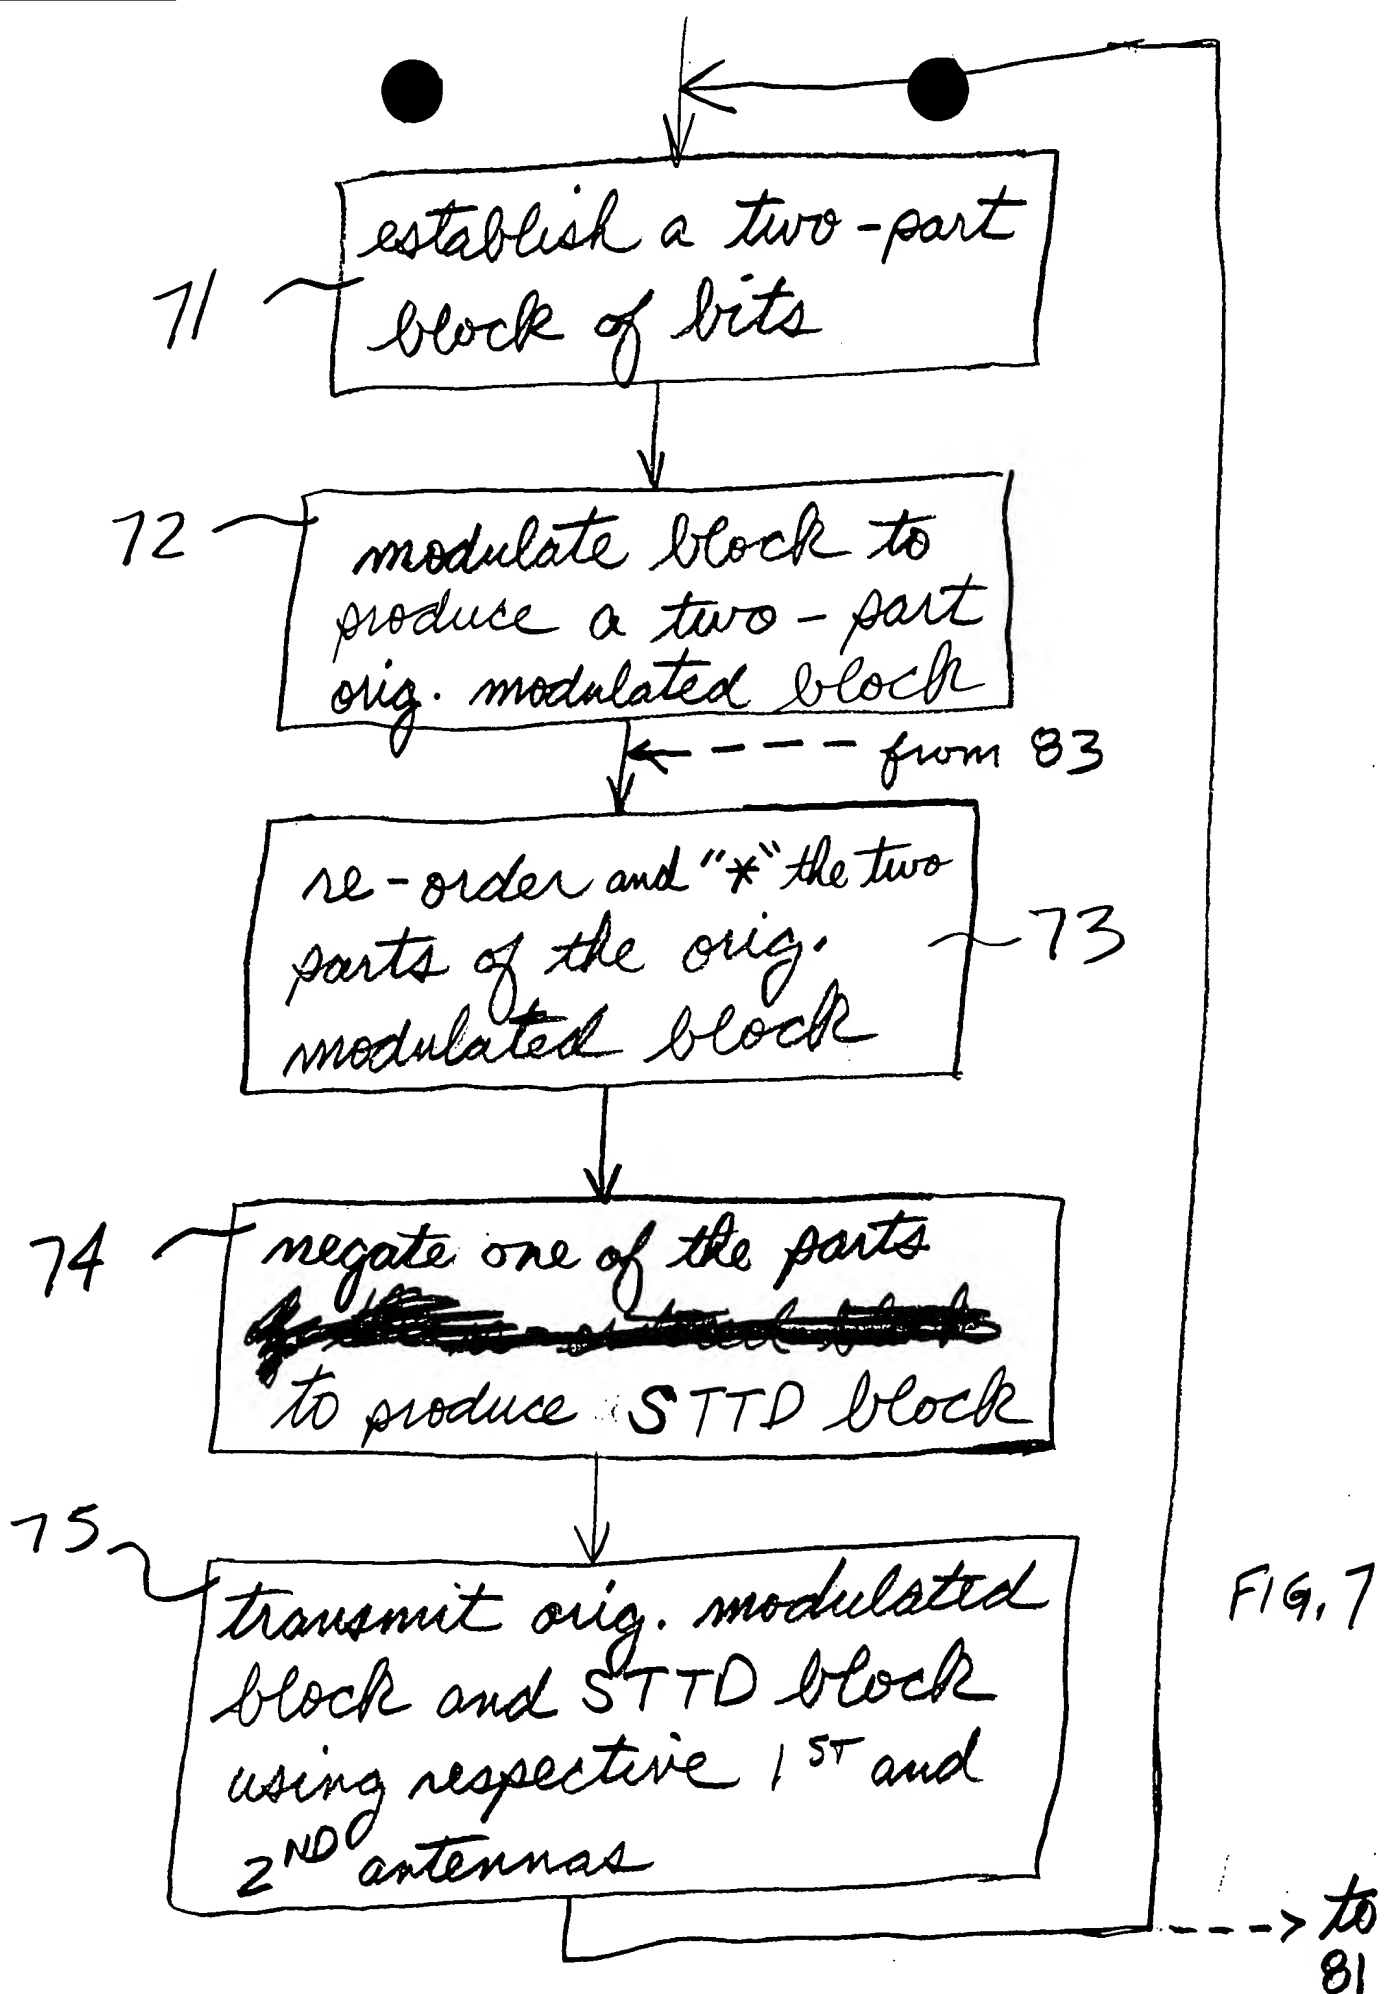 establish a two-part
block of bits
71
72
modulate block to
produce a two-part
orig. modulated block
from 83
re-order and "*" the two
parts of the orig.
modulated block
73
74
negate one of the parts
to produce STTD block
75
transmit orig. modulated
block and STTD block
using respective 1ST and
2ND antennas
FIG. 7
to
81